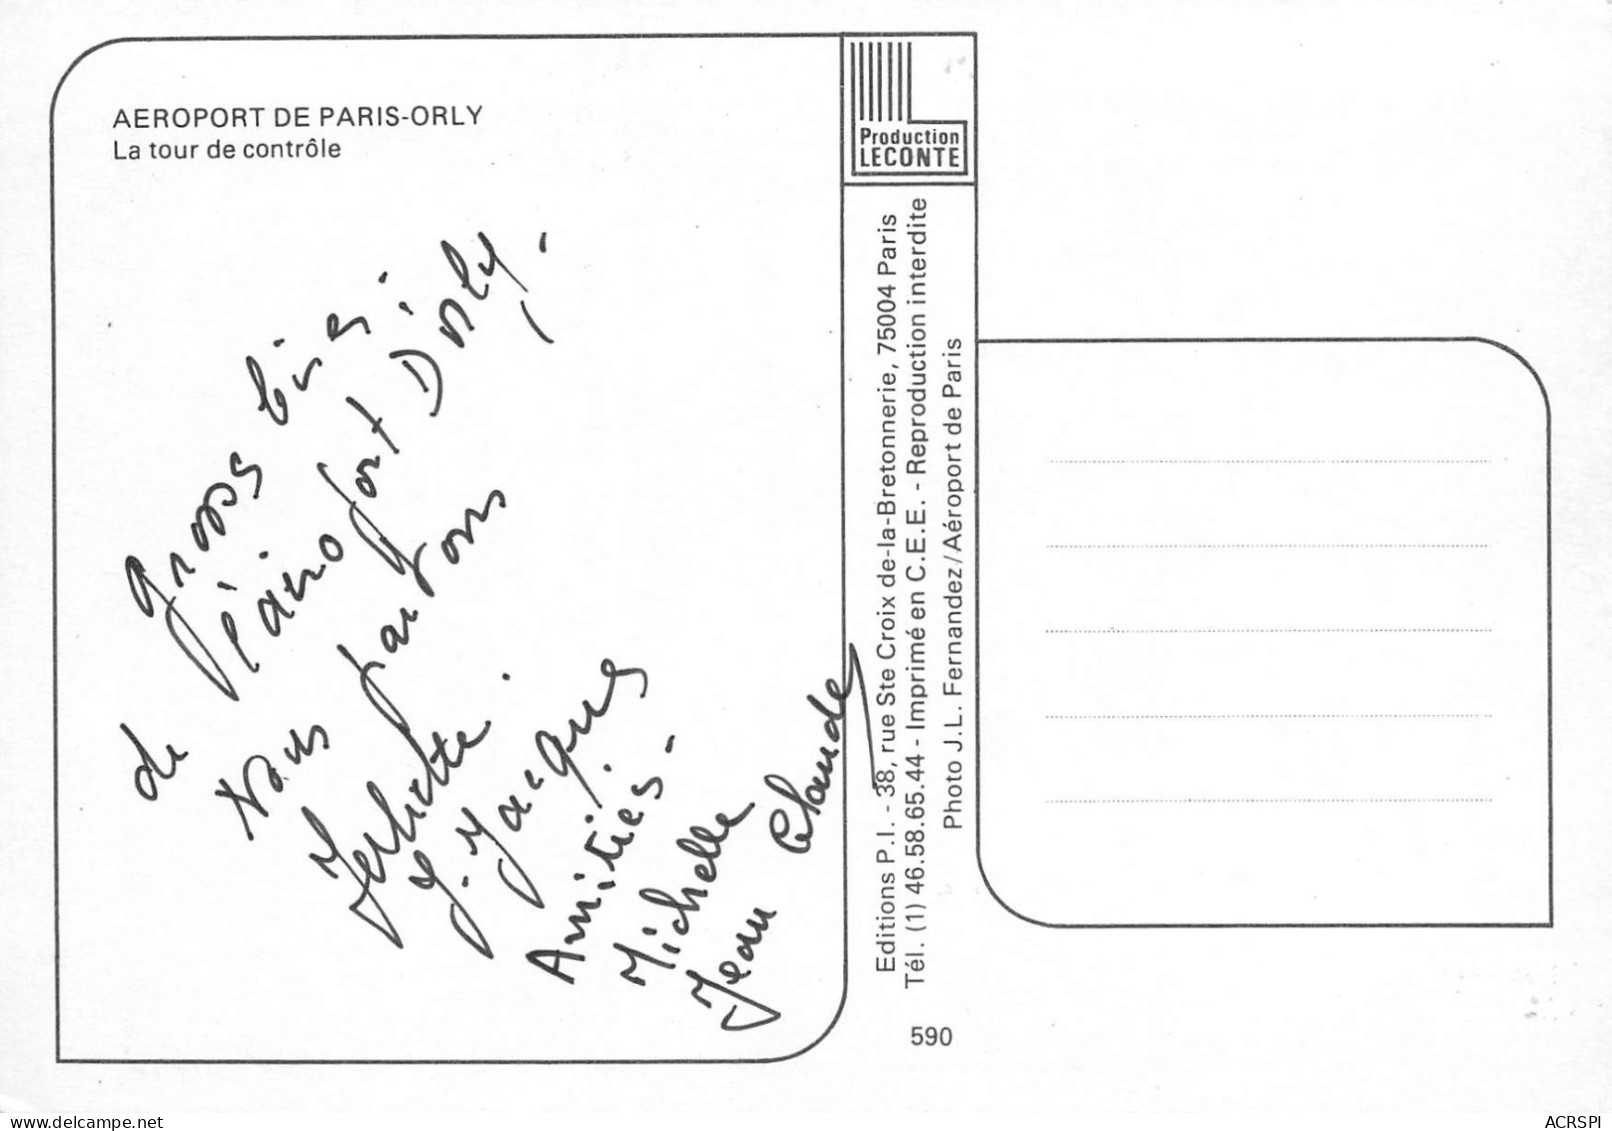 AEROPORT DE PARIS-ORLY
La tour de contrôle
gross bises
de l'aéroport D'Orly.
Nous partons
Juliette.
J. Jacques
Amitiés.
Michelle
Jean Claude
Production
LECONTE
Editions P.I. - 38, rue Ste Croix de-la-Bretonnerie, 75004 Paris
Tél. (1) 46.58.65.44 - Imprimé en C.E.E. - Reproduction interdite
Photo J.L. Fernandez/Aéroport de Paris
590
ACRSPI